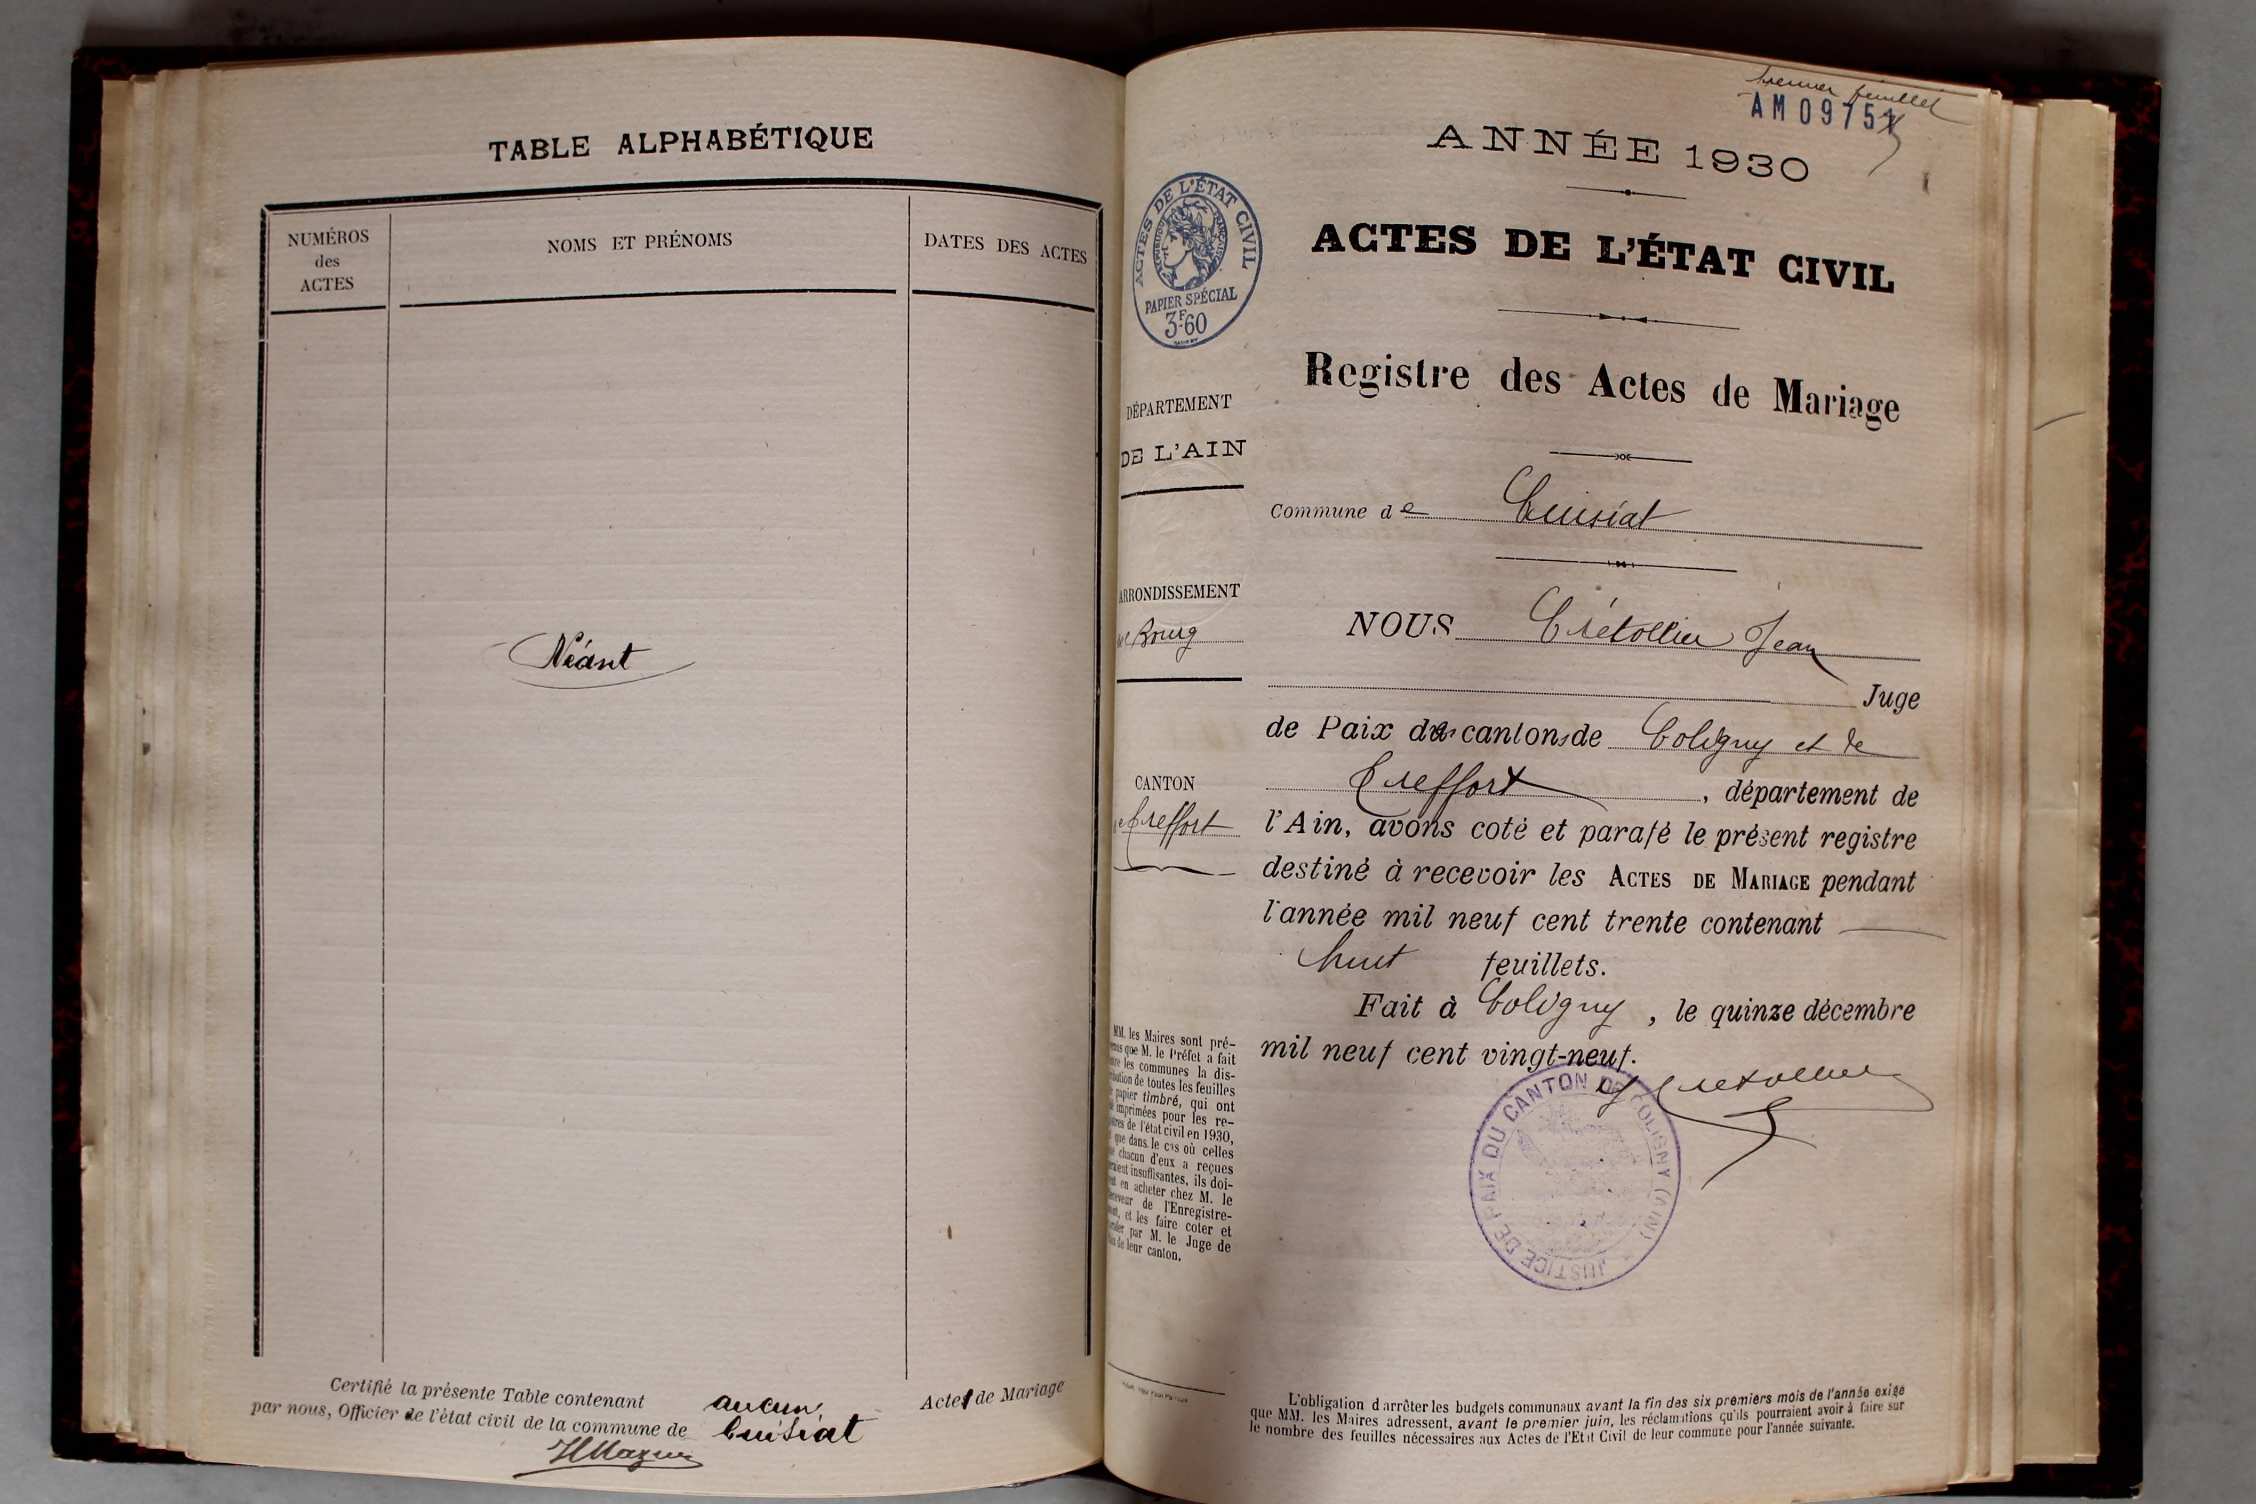 TABLE ALPHABÉTIQUE
NUMÉROS
des
ACTES
NOMS ET PRÉNOMS
DATES DES ACTES
Néant
Certifié la présente Table contenant aucun Acte de Mariage
par nous, Officier de l'état civil de la commune de Cuisiat
premier feuillet
AM 0975
ANNÉE 1930
ACTES DE L'ÉTAT CIVIL
PAPIER SPÉCIAL
3F.60
ACTES DE L'ÉTAT CIVIL
Registre des Actes de Mariage
DÉPARTEMENT
DE L'AIN
Commune de Cuisiat
ARRONDISSEMENT
de Bourg
CANTON
de Treffort
NOUS Crétollier Jean
Juge
de Paix des cantons de Coligny et de
Treffort, département de
l'Ain, avons coté et parafé le présent registre
destiné à recevoir les ACTES DE MARIAGE pendant
l'année mil neuf cent trente contenant
huit feuillets.
Fait à Coligny, le quinze décembre
mil neuf cent vingt-neuf.
Cretollier
JUSTICE DE PAIX DU CANTON DE COLIGNY (AIN)
MM. les Maires sont pré-
que M. le Préfet a fait
les communes la dis-
de toutes les feuilles
papier timbré, qui ont
imprimées pour les re-
de l'état civil en 1930,
que dans le cas où celles
chacun d'eux a reçues
insuffisantes, ils doi-
en acheter chez M. le
de l'Enregistre-
et les faire coter et
par M. le Juge de
de leur canton.
L'obligation d'arrêter les budgets communaux avant la fin des six premiers mois de l'année exige
que MM. les Maires adressent, avant le premier juin, les réclamations qu'ils pourraient avoir à faire sur
le nombre des feuilles nécessaires aux Actes de l'Etat Civil de leur commune pour l'année suivante.